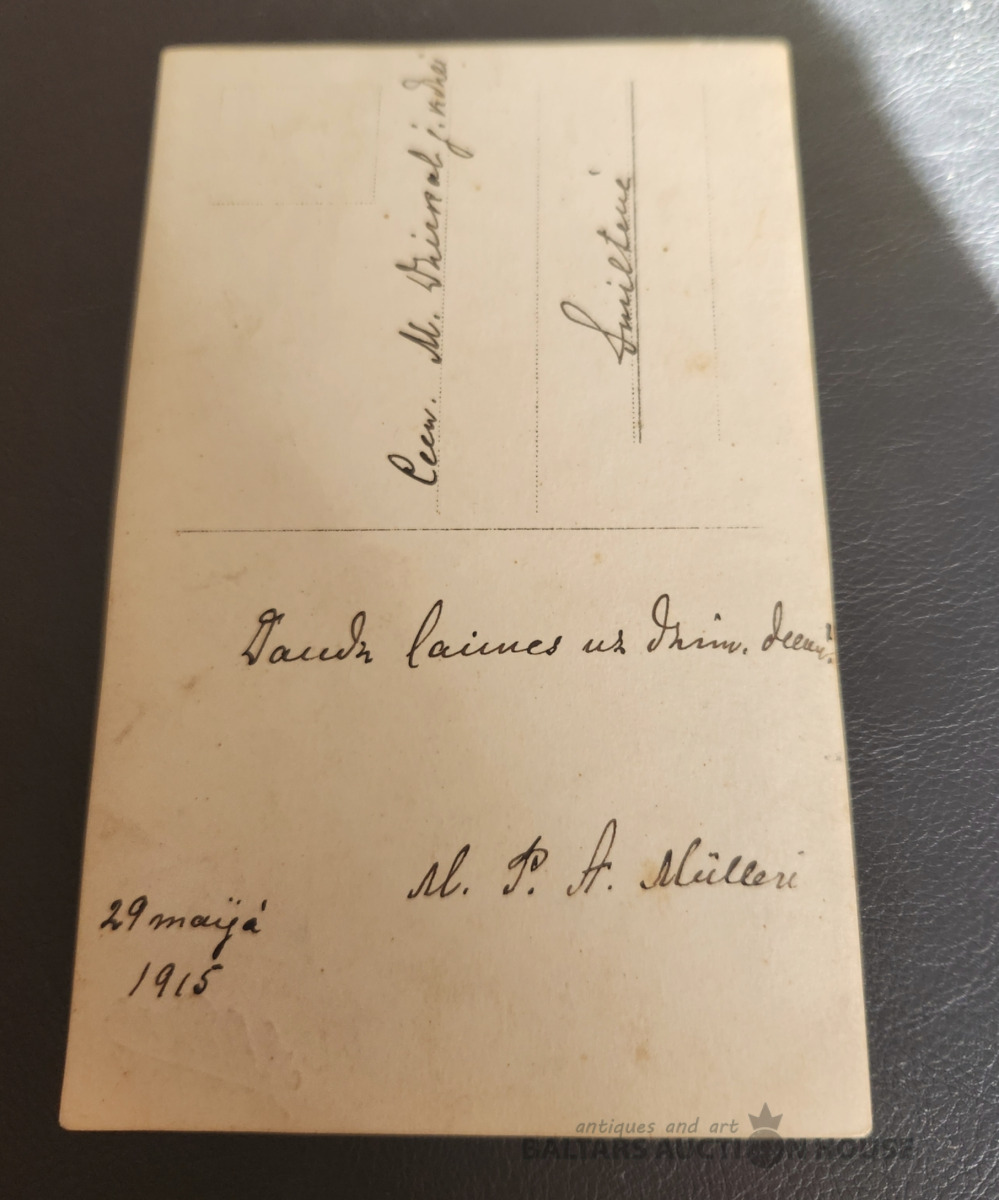 Ceen. M. Dzienal j. kdzei
Smiltenē
Daudz laimes uz dzim. deenu.
M. P. A. Mülleri
29 maijá
1915
antiques and art
BALTARS AUCTION HOUSE